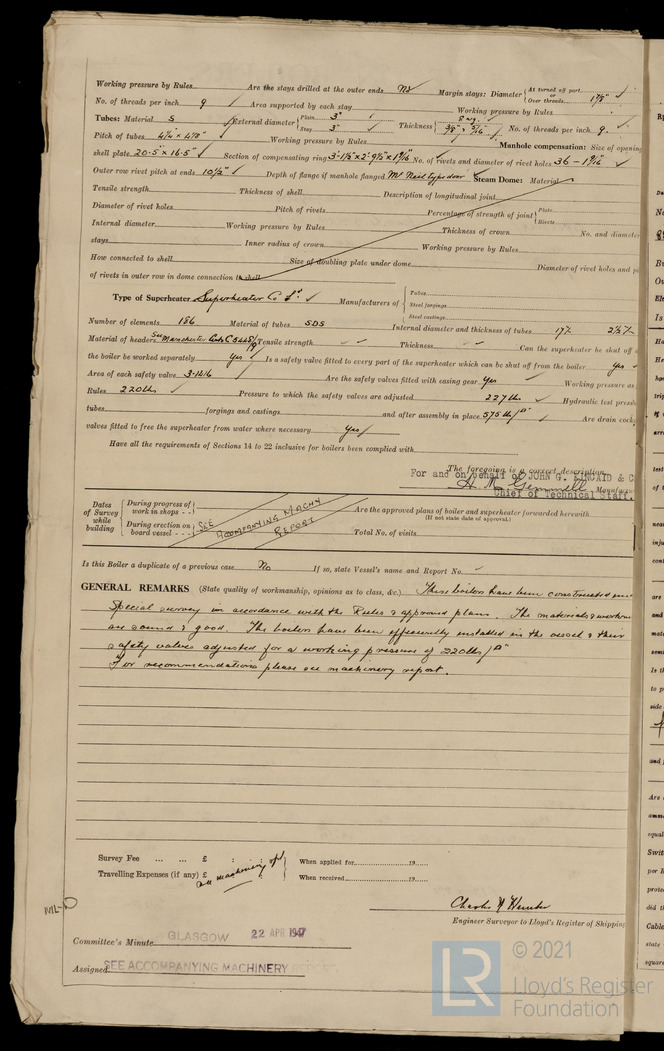 Working pressure by Rules Are the stays drilled at the outer ends No Margin stays: Diameter { At turned off part, or Over threads 1 7/8" ✓
No. of threads per inch 9 ✓ Area supported by each stay Working pressure by Rules
Tubes: Material S ✓ External diameter { Plain 3" Stay 3" ✓ Thickness { 8 wg. 3/8" & 5/16 ✓ No. of threads per inch 9. ✓
Pitch of tubes 4 1/4" × 4 1/8" ✓ Working pressure by Rules Manhole compensation: Size of opening
shell plate 20.5" × 16.5" ✓ Section of compensating ring No. of rivets and diameter of rivet holes 36 - 1 9/16 ✓
Outer row rivet pitch at ends 10 1/2" ✓ Depth of flange if manhole flanged Mc Neil type door ✓ Steam Dome: Material
Tensile strength Thickness of shell Description of longitudinal joint
Diameter of rivet holes Pitch of rivets Percentage of strength of joint { Plate Rivets
Internal diameter Working pressure by Rules Thickness of crown No. and diameter
stays Inner radius of crown Working pressure by Rules
How connected to shell Size of doubling plate under dome Diameter of rivet holes and
of rivets in outer row in dome connection to shell
Type of Superheater Superheater Co Ld. ✓ Manufacturers of { Tubes Steel forgings Steel castings
Number of elements 186 Material of tubes SDS Internal diameter and thickness of tubes 17
Material of headers See Manchester Tensile strength ✓ ✓ Thickness ✓ ✓ Can the superheater be shut off
the boiler be worked separately Yes ✓ Is a safety valve fitted to every part of the superheater which can be shut off from the boiler yes ✓
Area of each safety valve 3.1416 ✓ Are the safety valves fitted with easing gear Yes ✓ Working pressure as
Rules 220 lbs ✓ Pressure to which the safety valves are adjusted 227 lbs ✓ Hydraulic test
tubes forgings and castings and after assembly in place 575 lb/□" ✓ Are drain cock
valves fitted to free the superheater from water where necessary Yes ✓
Have all the requirements of Sections 14 to 22 inclusive for boilers been complied with
The foregoing is a correct description,
For and on behalf of JOHN G. KINCAID & C
H. M. Gemmell Manufac
Chief of Technical Staff.
Dates of Survey while building { During progress of work in shops - - During erection on board vessel - - - SEE ACCOMPANYING MACHY REPORT
Are the approved plans of boiler and superheater forwarded herewith
(If not state date of approval.)
Total No. of visits
Is this Boiler a duplicate of a previous case No If so, state Vessel's name and Report No. -
GENERAL REMARKS (State quality of workmanship, opinions as to class, &c.) These boilers have been constructed
Special survey in accordance with the Rules & approved plans. The materials &
are sound & good. The boilers have been efficiently installed in the vessel & their
safety valves adjusted for a working pressure of 220 lbs/□"
For recommendations please see machinery report.
Survey Fee ... ... £ : : When applied for 19
Travelling Expenses (if any) £ : : When received 19
on machinery
Charles Hunter
Engineer Surveyor to Lloyd's Register of Shipping
Committee's Minute GLASGOW 22 APR 1947
Assigned SEE ACCOMPANYING MACHINERY REPORT
© 2021
LR Lloyd's Register
Foundation